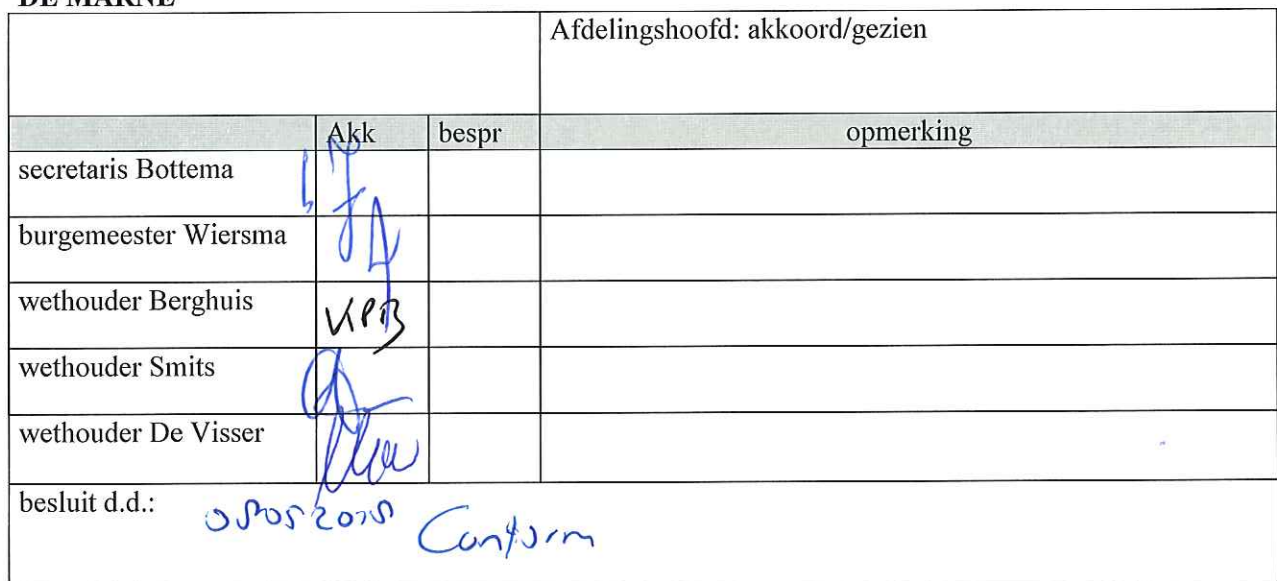 DE MARNE
Afdelingshoofd: akkoord/gezien
Akk bespr opmerking
secretaris Bottema
burgemeester Wiersma
wethouder Berghuis KPB
wethouder Smits
wethouder De Visser
besluit d.d.: Conform